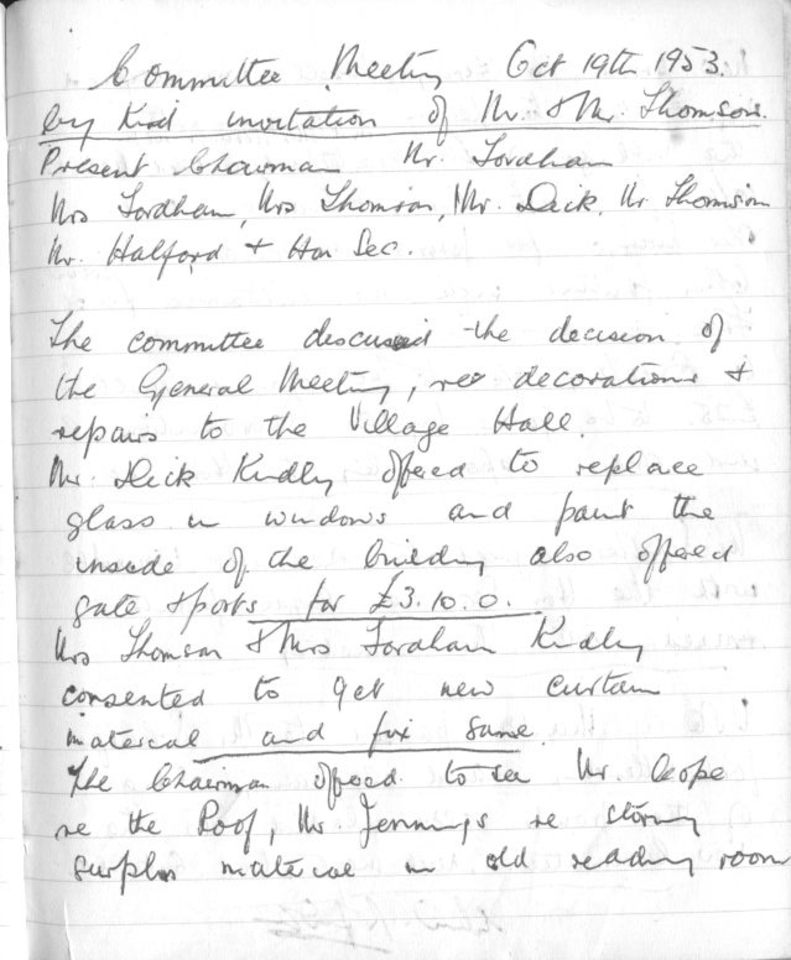 Committee Meeting Oct 19th 1953.
by Kind invitation of Mr. & Mr. Thomson.
Present Chairman Mr. Fordham
Mrs Fordham, Mrs Thomson, Mr. Dick, Mr Thomson
Mr. Halford + Hon Sec.
The committee discussed the decision of
the General Meeting, re decorations +
repairs to the Village Hall.
Mr. Dick Kindly offered to replace
glass in windows and paint the
inside of the building also offered
gate & posts for £3.10.0.
Mrs Thomson & Mrs Fordham Kindly
consented to get new curtain
material and fix same
The Chairman offered to see Mr. Cope
re the Roof, Mr. Jennings re storing
surplus material in old reading room